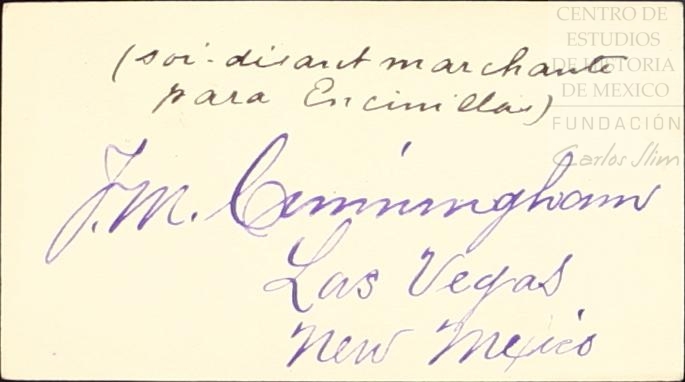 CENTRO DE
ESTUDIOS
DE HISTORIA
DE MEXICO
FUNDACIÓN
Carlos Slim
(soi-disant marchante
para Encinillas)
J.M. Cunningham
Las Vegas
New Mexico